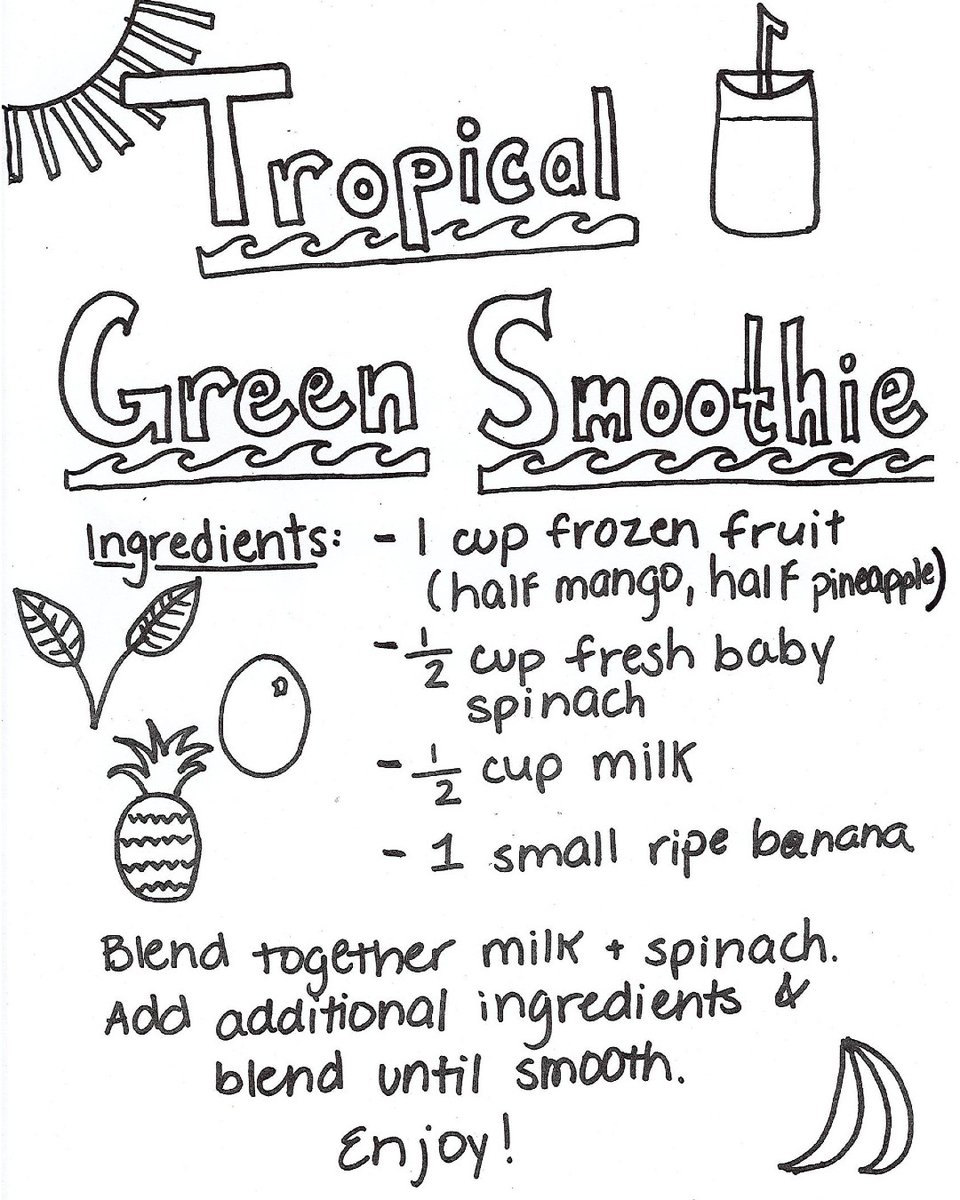 Tropical
Green Smoothie
Ingredients: - 1 cup frozen fruit
(half mango, half pineapple)
- 1/2 cup fresh baby
spinach
- 1/2 cup milk
- 1 small ripe banana
Blend together milk + spinach.
Add additional ingredients &
blend until smooth.
Enjoy!